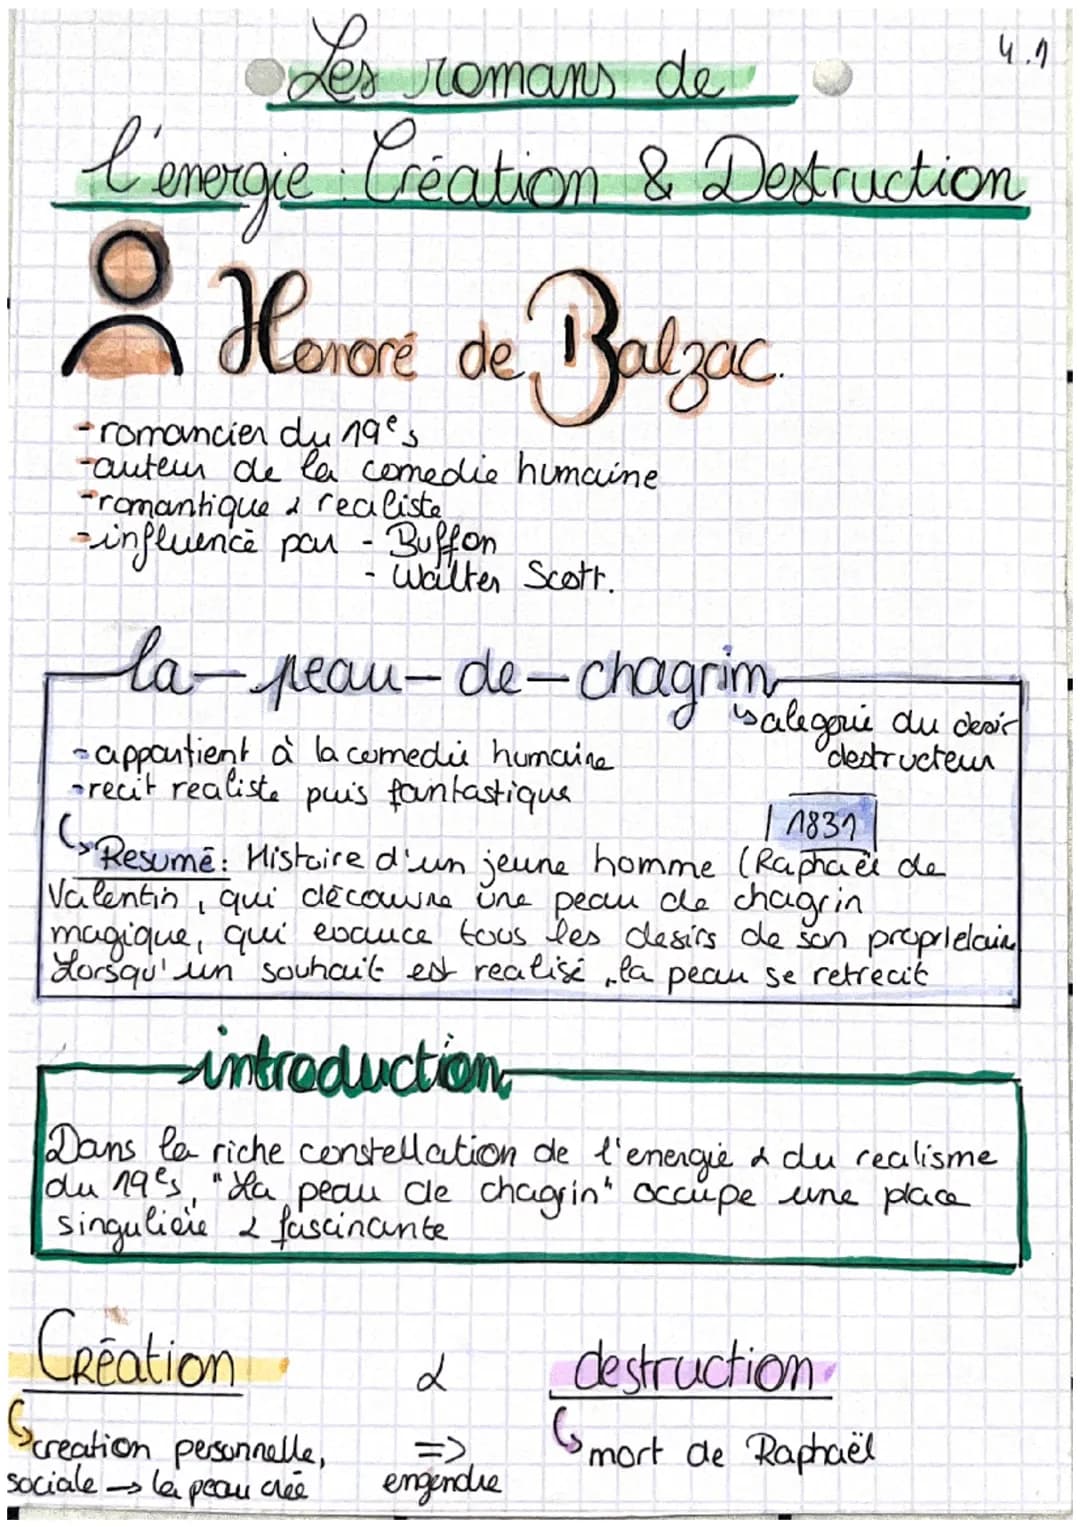 4.1
Les romans de
l'énergie : Création & Destruction
Honoré de Balzac.
-romancier du 19e s
-auteur de la comedie humaine
-romantique & realiste
-influencé par - Buffon
- Walter Scott.
la-peau-de-chagrim
↳alegorie du desir
destructeur
-appartient à la comedie humaine
-recit realiste puis fantastique
1831
↳Resumé: Histoire d'un jeune homme (Raphaël de
Valentin, qui découvre une peau de chagrin
magique, qui exauce tous les desirs de son proprietaire
Lorsqu'un souhait est realisé, la peau se retrecit
introduction
Dans la riche constellation de l'energie & du realisme
du 19es, "La peau de chagrin" occupe une place
singulière & fascinante
Création & destruction
↳creation personnelle, => ↳mort de Raphaël
sociale → la peau créé engendre